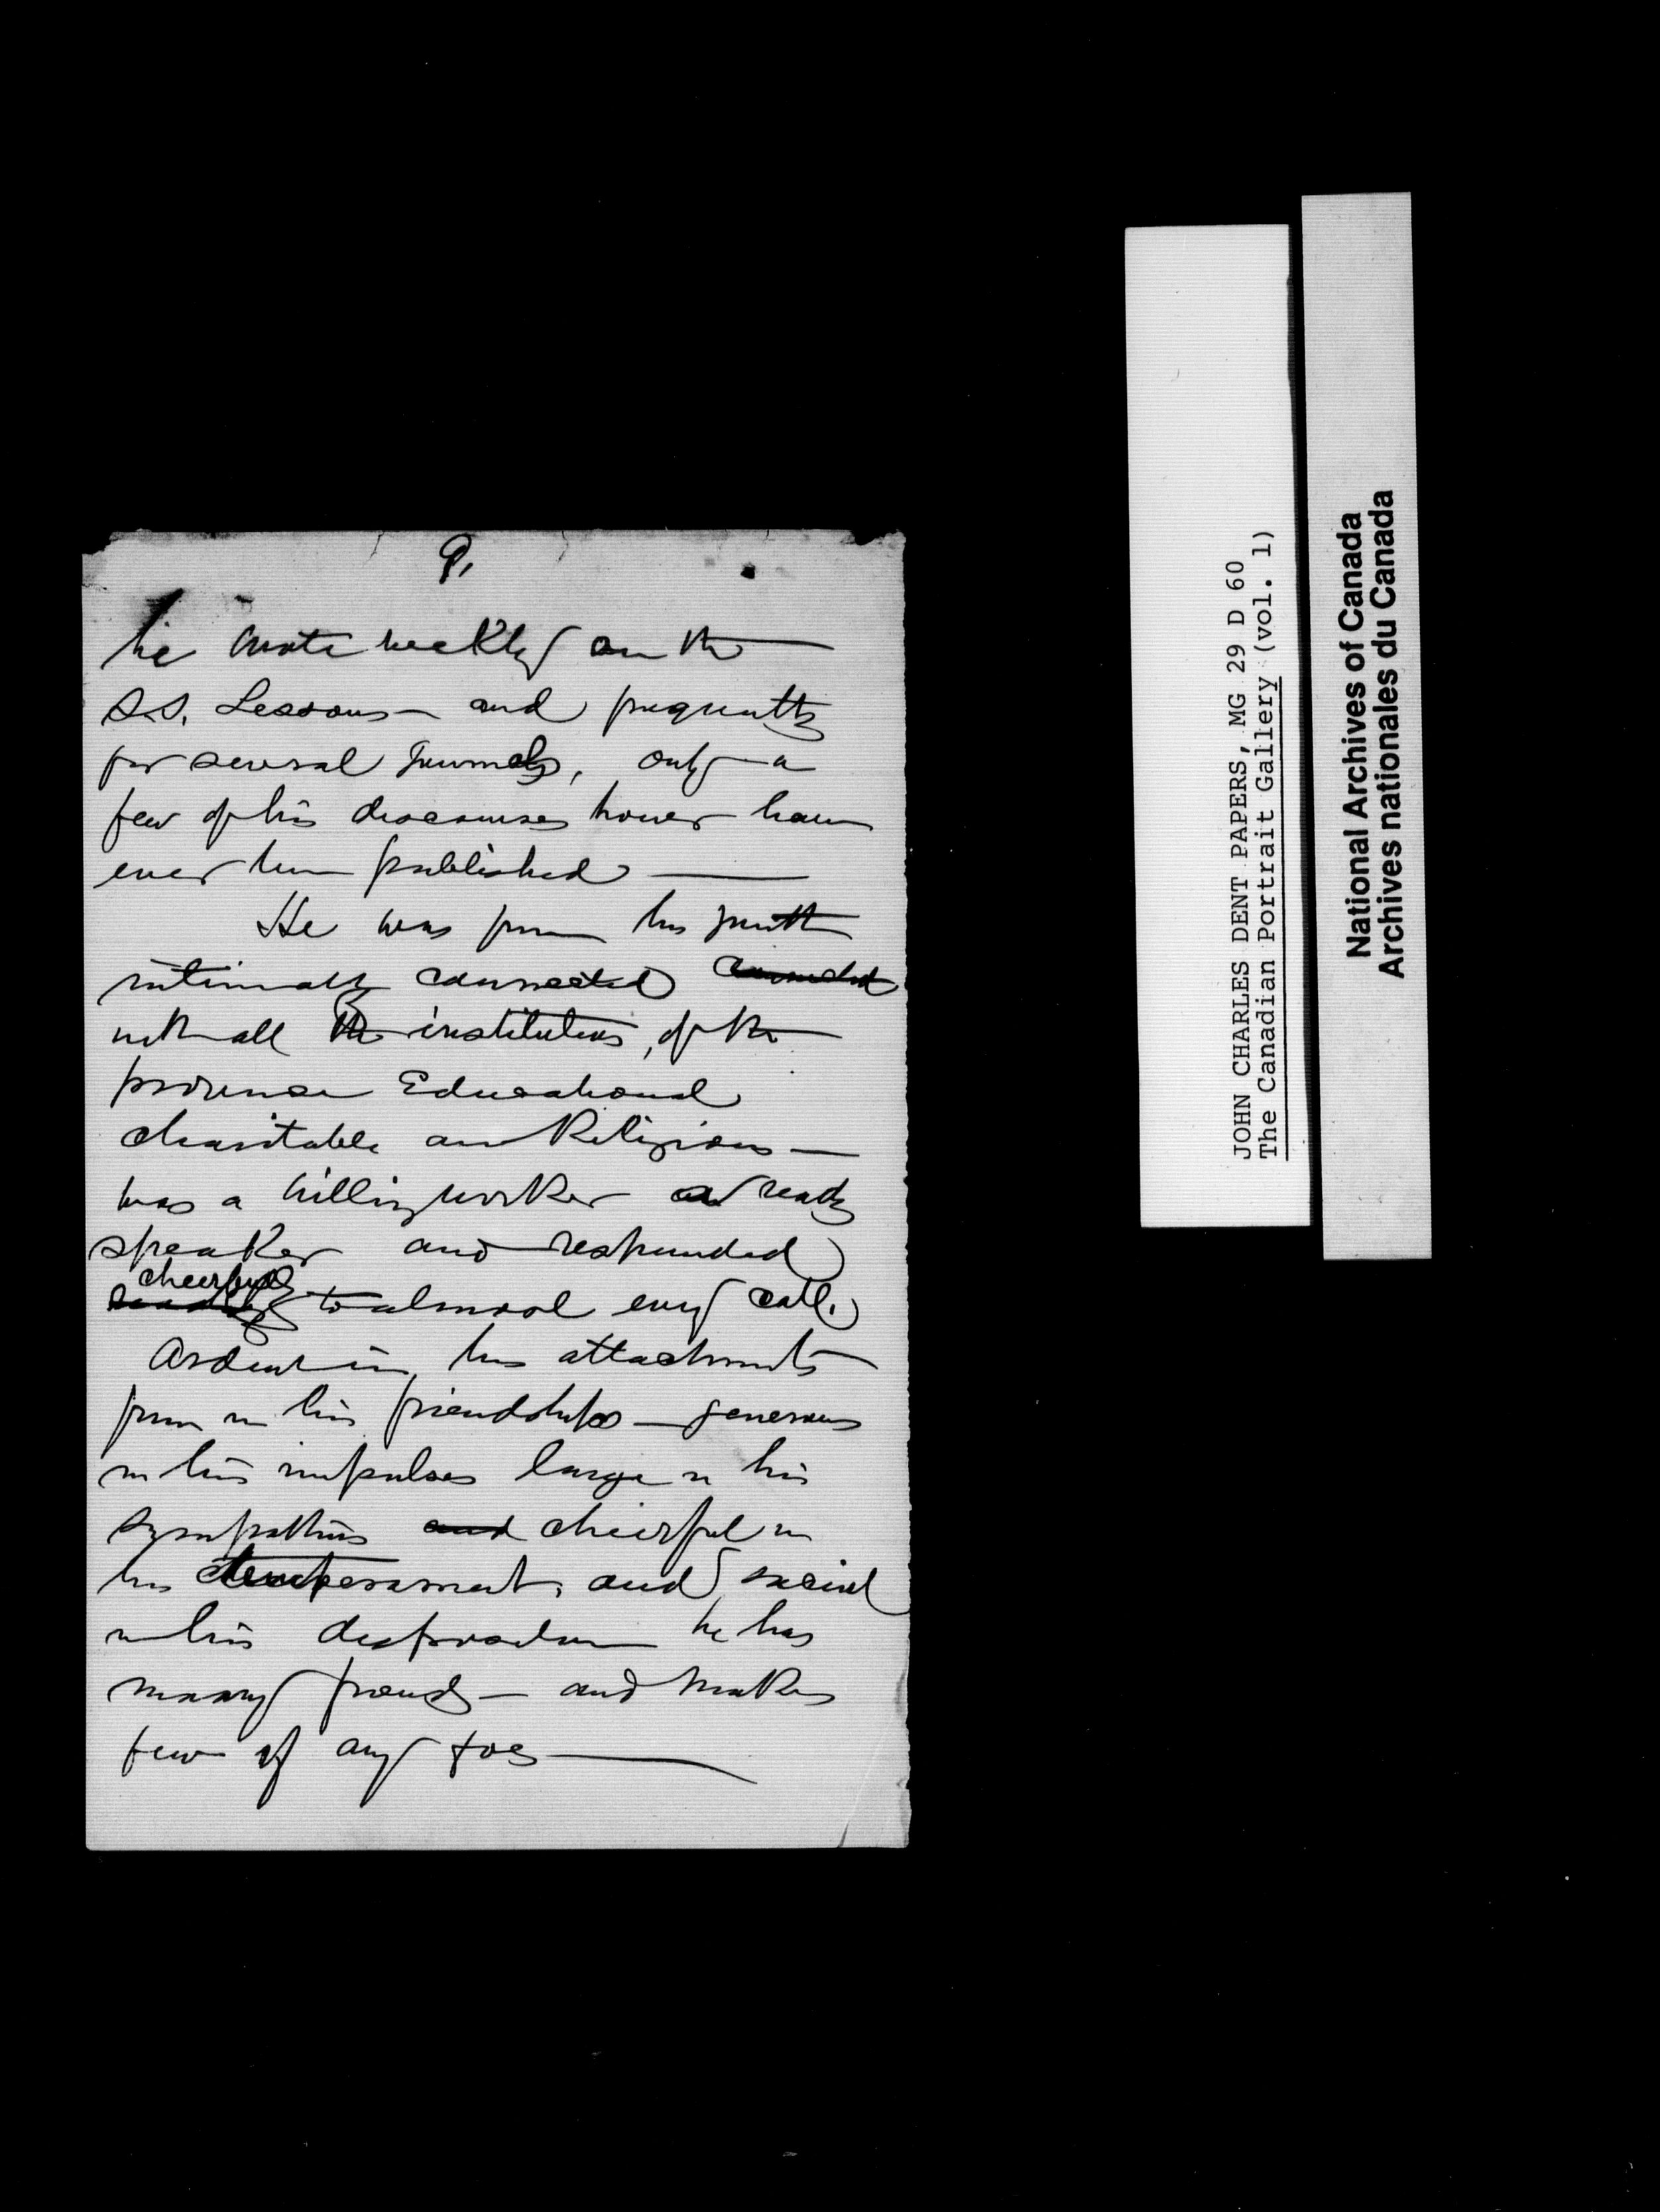 9.
he wrote weekly on the
S.S. Lessons — and frequently
for several Journals, only a
few of his discourses however have
ever been published —
He was from his youth
intimately connected connected
with all the institutions, of the
province Educational
charitable and Religious —
was a willing worker a ready
speaker and responded
cheerfully
readily to almost every call.
Ardent in his attachments
firm in his friendships — generous
in his impulses large in his
sympathies and cheerful in
his temperament, and social
in his disposition he has
many friends — and makes
few if any foes —
JOHN CHARLES DENT PAPERS, MG 29 D 60
The Canadian Portrait Gallery (vol. 1)
National Archives of Canada
Archives nationales du Canada